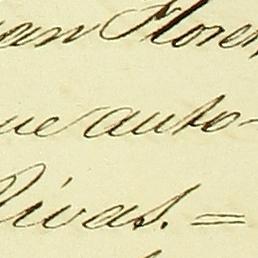 an Floren
ue auto-
Rivas. =